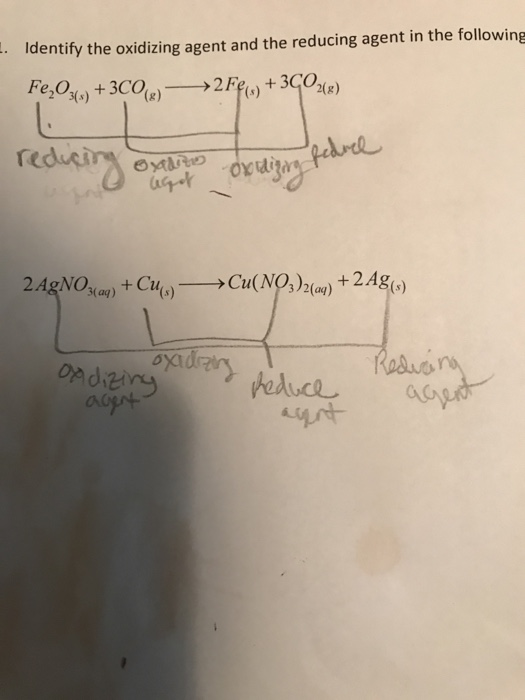 1. Identify the oxidizing agent and the reducing agent in the following
Fe₂O₃₍ₛ₎ + 3CO₍g₎ ⟶ 2Fe₍ₛ₎ + 3CO₂₍g₎
reducing oxidizing reduce
agent
2AgNO₃₍aq₎ + Cu₍ₛ₎ ⟶ Cu(NO₃)₂₍aq₎ + 2Ag₍ₛ₎
oxidizing oxidizing reduce Reducing
agent agent agent